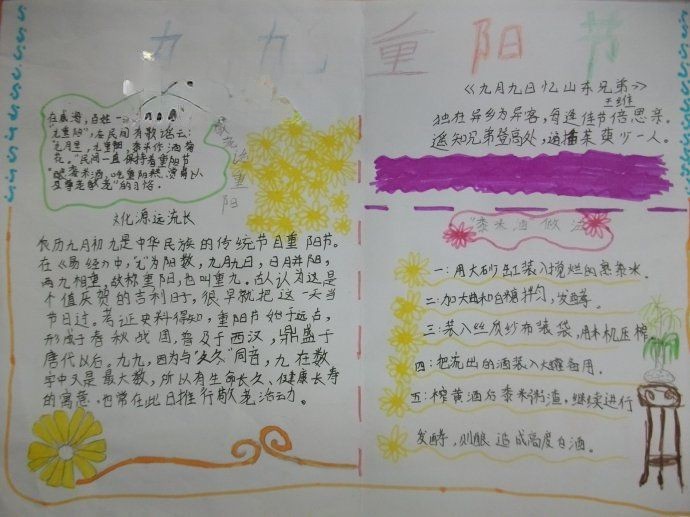 九九重阳节
在威海，百姓一
九重阳"，在民间有歌谣云：
"九月里，九重阳，黍米作酒菊
花。"民间一直保持着重阳节
喝黍米酒，吃重阳糕，赏菊以
及尊老敬老"的习俗。
话重阳
文化源远流长
农历九月初九是中华民族的传统节日重阳节。
在《易经》中，"九"为阳数，九月九日，日月并阳，
两九相重，故称重阳，也叫重九。古人认为这是
个值庆贺的吉利日子，很早就把这一天当
节日过。考证史料得知，重阳节始于远古，
形成于春秋战国，普及于西汉，鼎盛于
唐代以后。九九，因为与"久久"同音，九在数
字中又是最大数，所以有生命长久、健康长寿
的寓意，也常在此日推行敬老活动。
《九月九日忆山东兄弟》
王维
独在异乡为异客，每逢佳节倍思亲。
遥知兄弟登高处，遍插茱萸少一人。
"黍米酒做法
一：用大砂缸装入搅烂的熟黍米。
二：加大曲和白糖拌匀，发酵。
三：装入丝质纱布装袋，用木机压榨。
四：把流出的酒装入大罐备用。
五：榨黄酒后黍米粥渣，继续进行
发酵，则酿造成高度白酒。